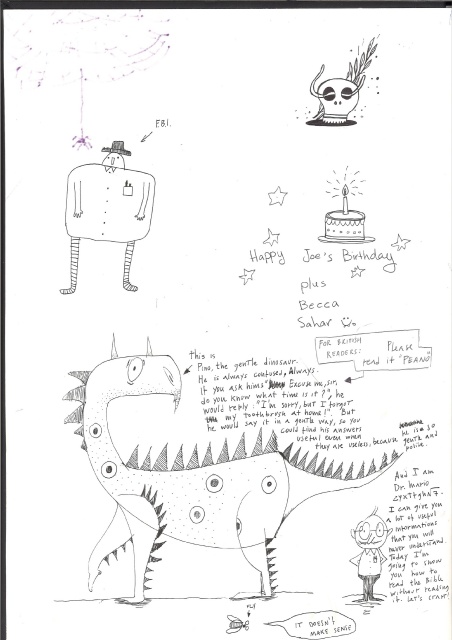 F.B.I.
Happy Joe's Birthday
plus
Becca
Sahar
FOR BRITISH
READERS:
Please
read it "PEANO"
this is
Pino, the gentle dinosaur.
He is always confused, Always.
If you ask him: " Excuse me, sir,
do you know what time is it?", he
would reply: "I'm sorry, but I forgot
my toothbrush at home!". But
he would say it in a gentle way, so you
could find his answers
useful even when
they are useless, because he is so
gentle and
polite.
And I am
Dr. Mario
I can give you
a lot of useful
informations
that you will
never understand.
Today I'm
going to show
you how to
read the Bible
without reading
it. Let's start!
FLY
IT DOESN'T
MAKE SENSE